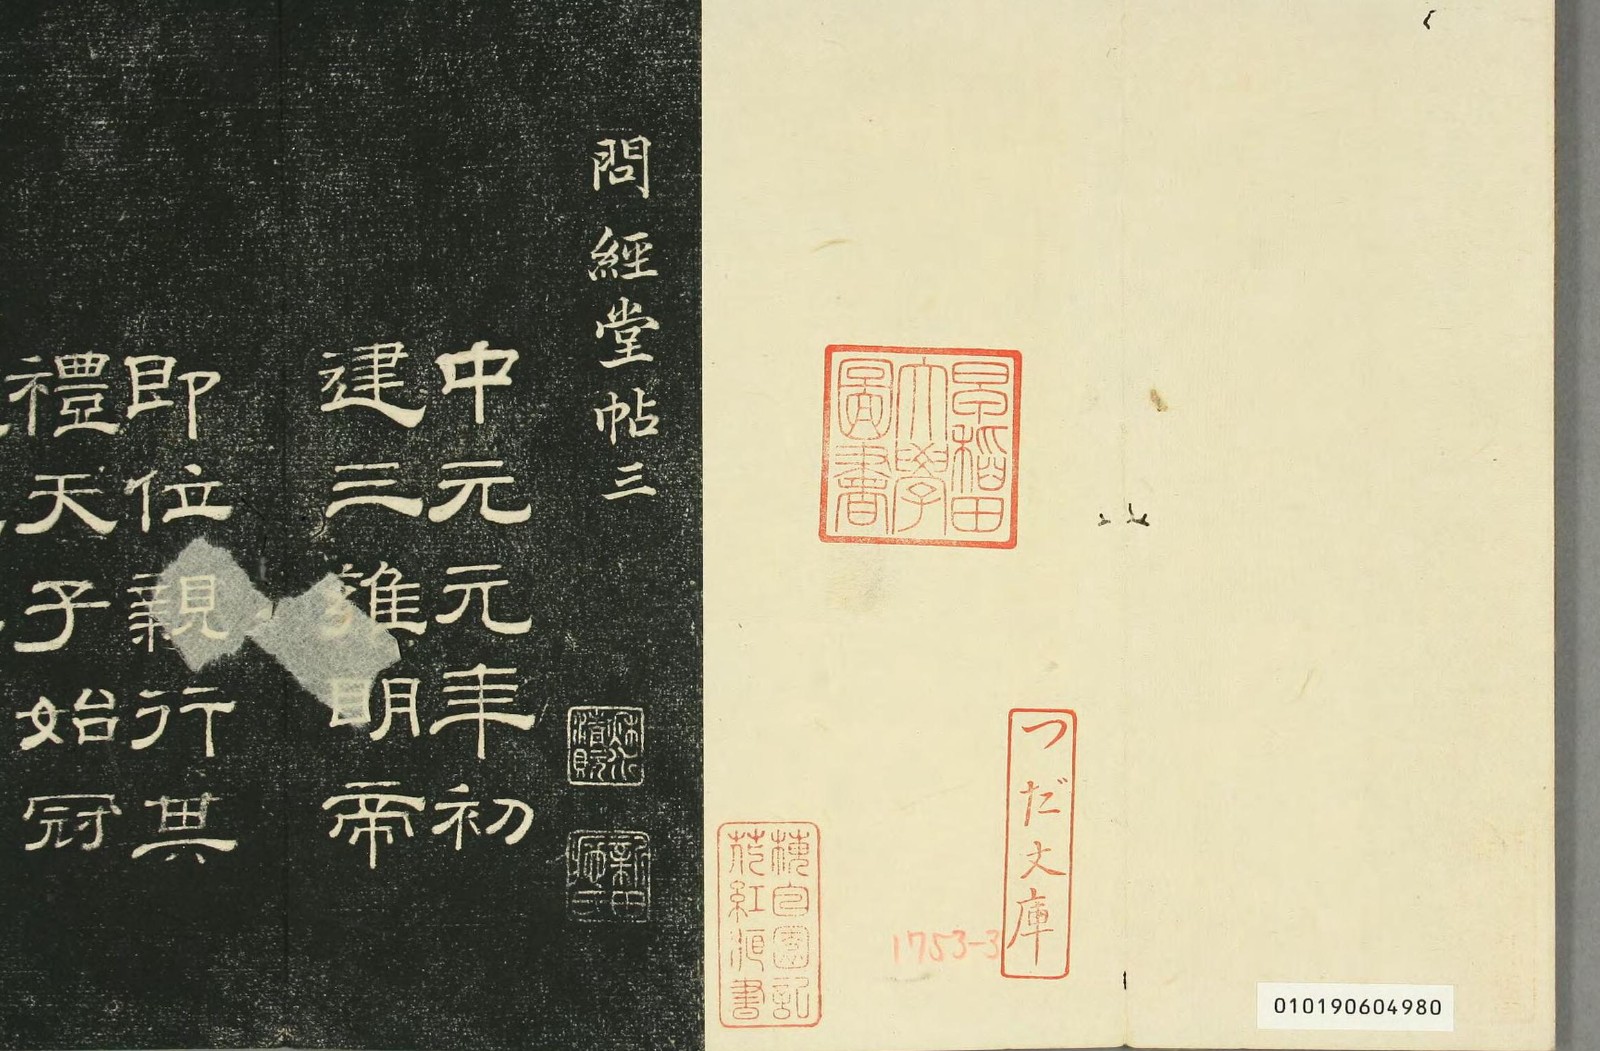 早稲田
大學
圖書
つだ文庫
1753-3
010190604980
問經堂帖三
中元元年初
建三雍明帝
即位親行其
禮天子始冠